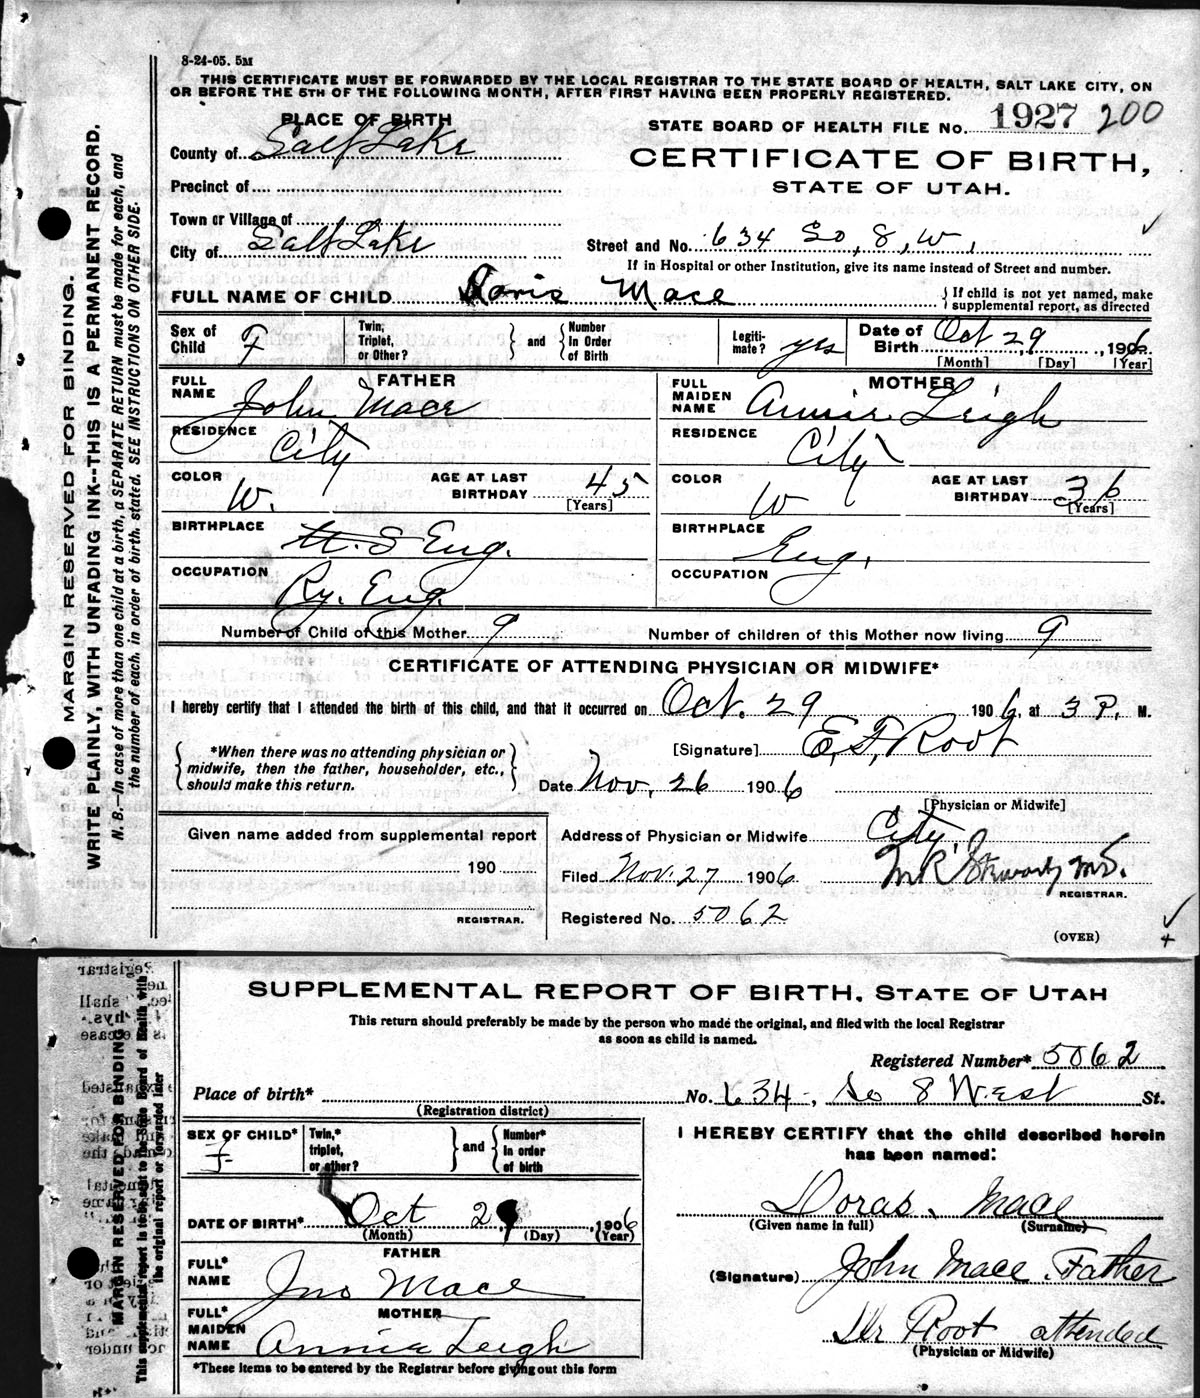 8-24-05. 5M
THIS CERTIFICATE MUST BE FORWARDED BY THE LOCAL REGISTRAR TO THE STATE BOARD OF HEALTH, SALT LAKE CITY, ON
OR BEFORE THE 5TH OF THE FOLLOWING MONTH, AFTER FIRST HAVING BEEN PROPERLY REGISTERED.
PLACE OF BIRTH
STATE BOARD OF HEALTH FILE No. 1927 200
County of Salt Lake
CERTIFICATE OF BIRTH,
STATE OF UTAH.
Precinct of
Town or Village of
City of Salt Lake
Street and No. 634 So, 8, W,
If in Hospital or other Institution, give its name instead of Street and number.
FULL NAME OF CHILD Doris Mace
{ If child is not yet named, make
supplemental report, as directed
Sex of
Child F
Twin,
Triplet,
or Other?
} and {
Number
In Order
of Birth
Legiti-
mate? yes
Date of
Birth Oct 29, 1906
[Month] [Day] [Year]
FATHER
FULL
NAME John Mace
RESIDENCE City
COLOR W.
AGE AT LAST
BIRTHDAY 45
[Years]
BIRTHPLACE U.S Eng.
OCCUPATION Ry. Eng.
MOTHER
FULL
MAIDEN
NAME Annie Leigh
RESIDENCE City
COLOR W
AGE AT LAST
BIRTHDAY 36
[Years]
BIRTHPLACE Eng.
OCCUPATION
Number of Child of this Mother 9
Number of children of this Mother now living 9
CERTIFICATE OF ATTENDING PHYSICIAN OR MIDWIFE*
I hereby certify that I attended the birth of this child, and that it occurred on Oct. 29 1906, at 3 P. M.
{ *When there was no attending physician or
midwife, then the father, householder, etc.,
should make this return. }
[Signature] E. F. Root
Date Nov, 26 1906
[Physician or Midwife]
Given name added from supplemental report
190
REGISTRAR.
Address of Physician or Midwife City
Filed Nov. 27 1906
REGISTRAR.
Registered No. 5062
(OVER)
MARGIN RESERVED FOR BINDING.
WRITE PLAINLY, WITH UNFADING INK--THIS IS A PERMANENT RECORD.
N. B.—In case of more than one child at a birth, a SEPARATE RETURN must be made for each, and
the number of each, in order of birth, stated. SEE INSTRUCTIONS ON OTHER SIDE.
SUPPLEMENTAL REPORT OF BIRTH, STATE OF UTAH
This return should preferably be made by the person who made the original, and filed with the local Registrar
as soon as child is named.
Registered Number* 5062
Place of birth*
(Registration district)
No. 634, So 8 West St.
SEX OF CHILD*
F
Twin,*
triplet,
or other?
} and {
Number*
In order
of birth
I HEREBY CERTIFY that the child described herein
has been named:
Doras, Mace
(Given name in full) (Surname)
DATE OF BIRTH* Oct 29, 1906
(Month) (Day) (Year)
FATHER
FULL*
NAME Jno Mace
MOTHER
FULL*
MAIDEN
NAME Annie Leigh
(Signature) John Mace. Father
Dr Root attended
(Physician or Midwife)
*These items to be entered by the Registrar before giving out this form
MARGIN RESERVED FOR BINDING
This supplemental report is to be sent to the State Board of Health with
the original report or forwarded later